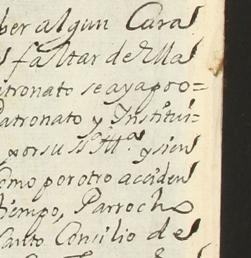 ber algun Cura
faltar de Ella
atronato se aya poo=
Patronato y Institui-
por su Ss.ria y sien
Como por otro acciden
tiempo, Parrocho
Santo Consilio de